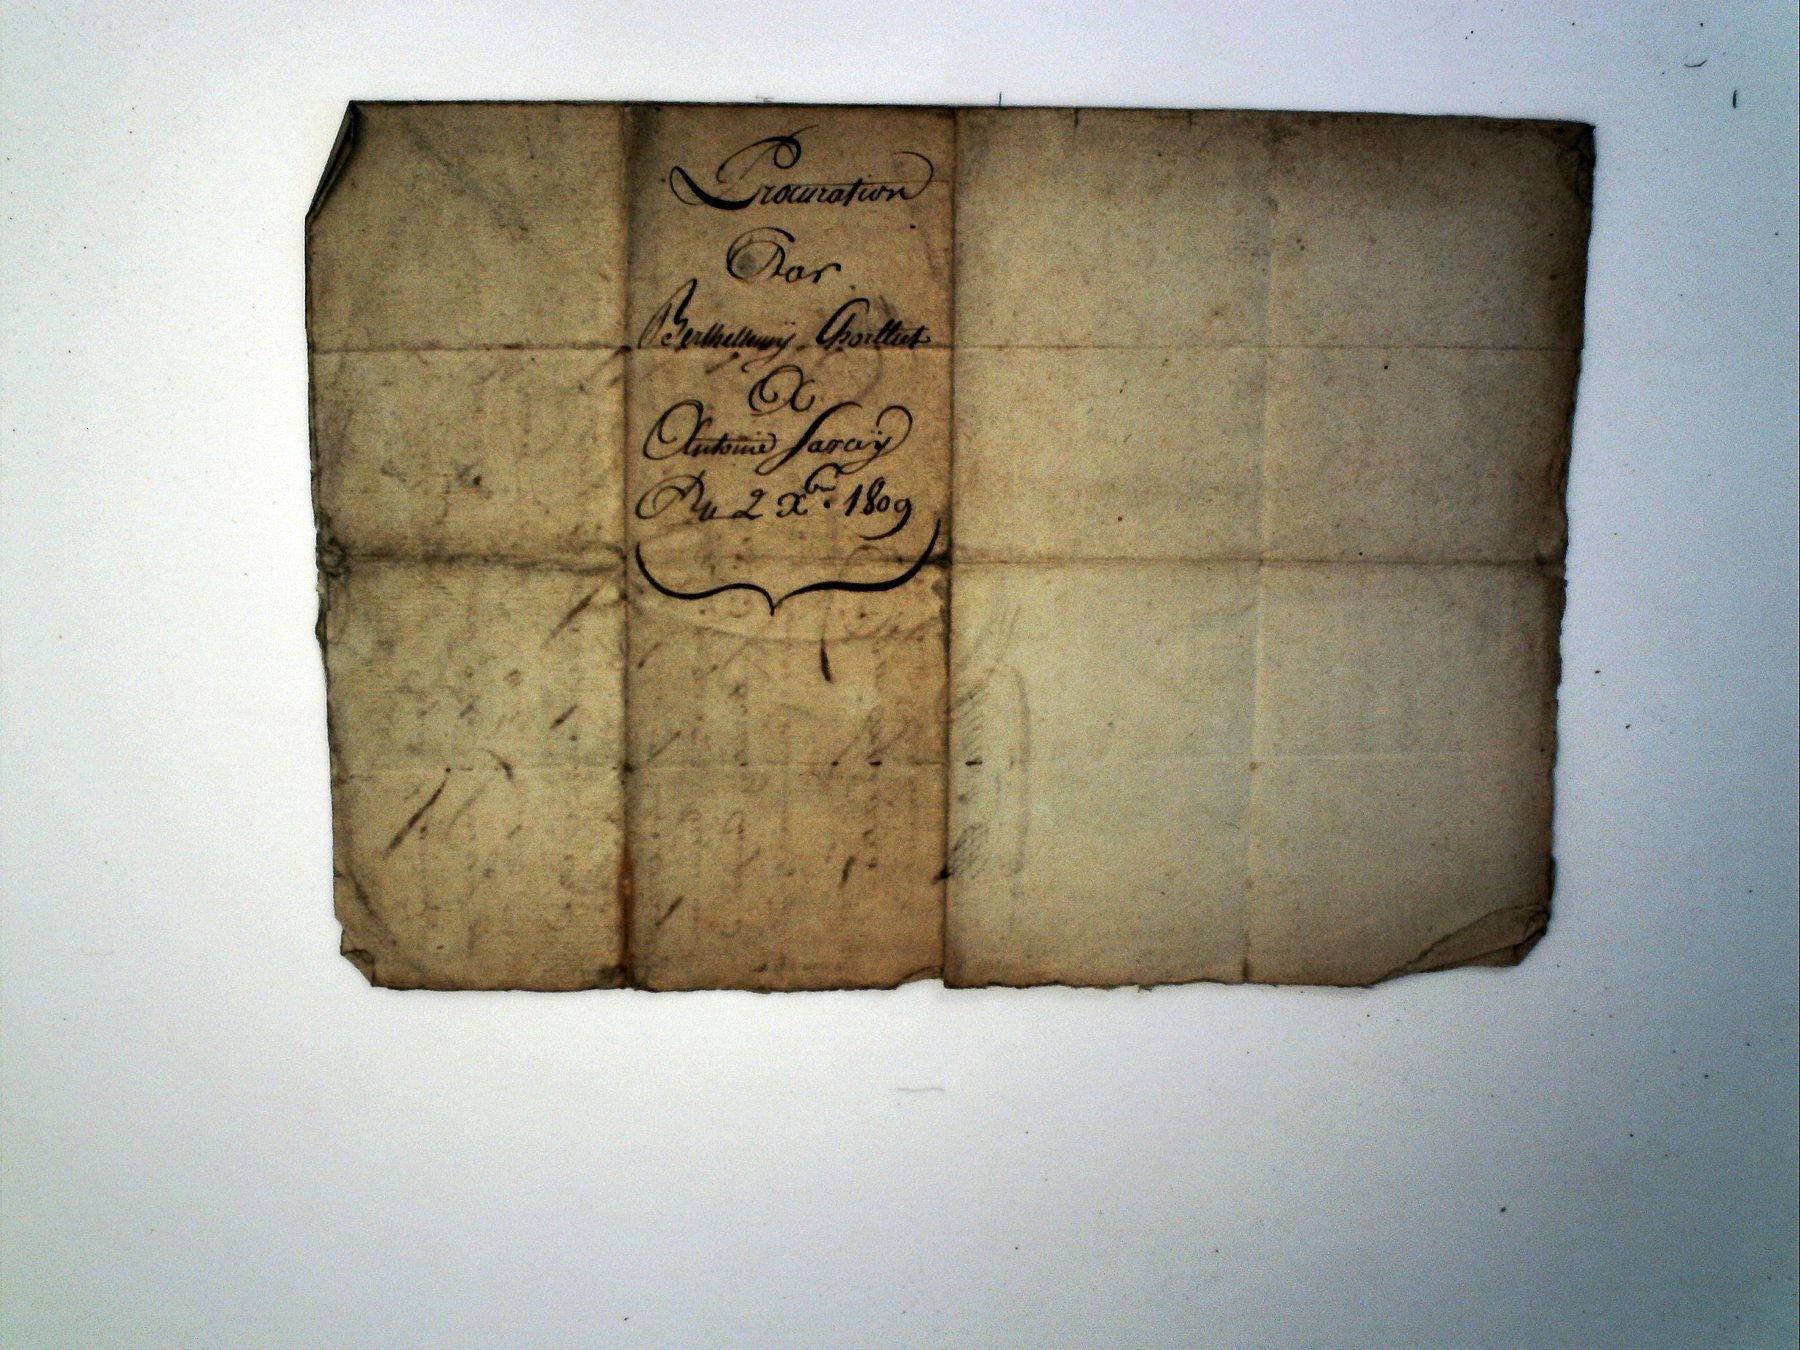 Procuration
Par
Berthellemÿ
A
Antoine Sarcÿ
Du 2 Xbr. 1809